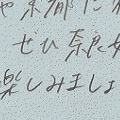 や京都に
ぜひ奈良
楽しみましょ